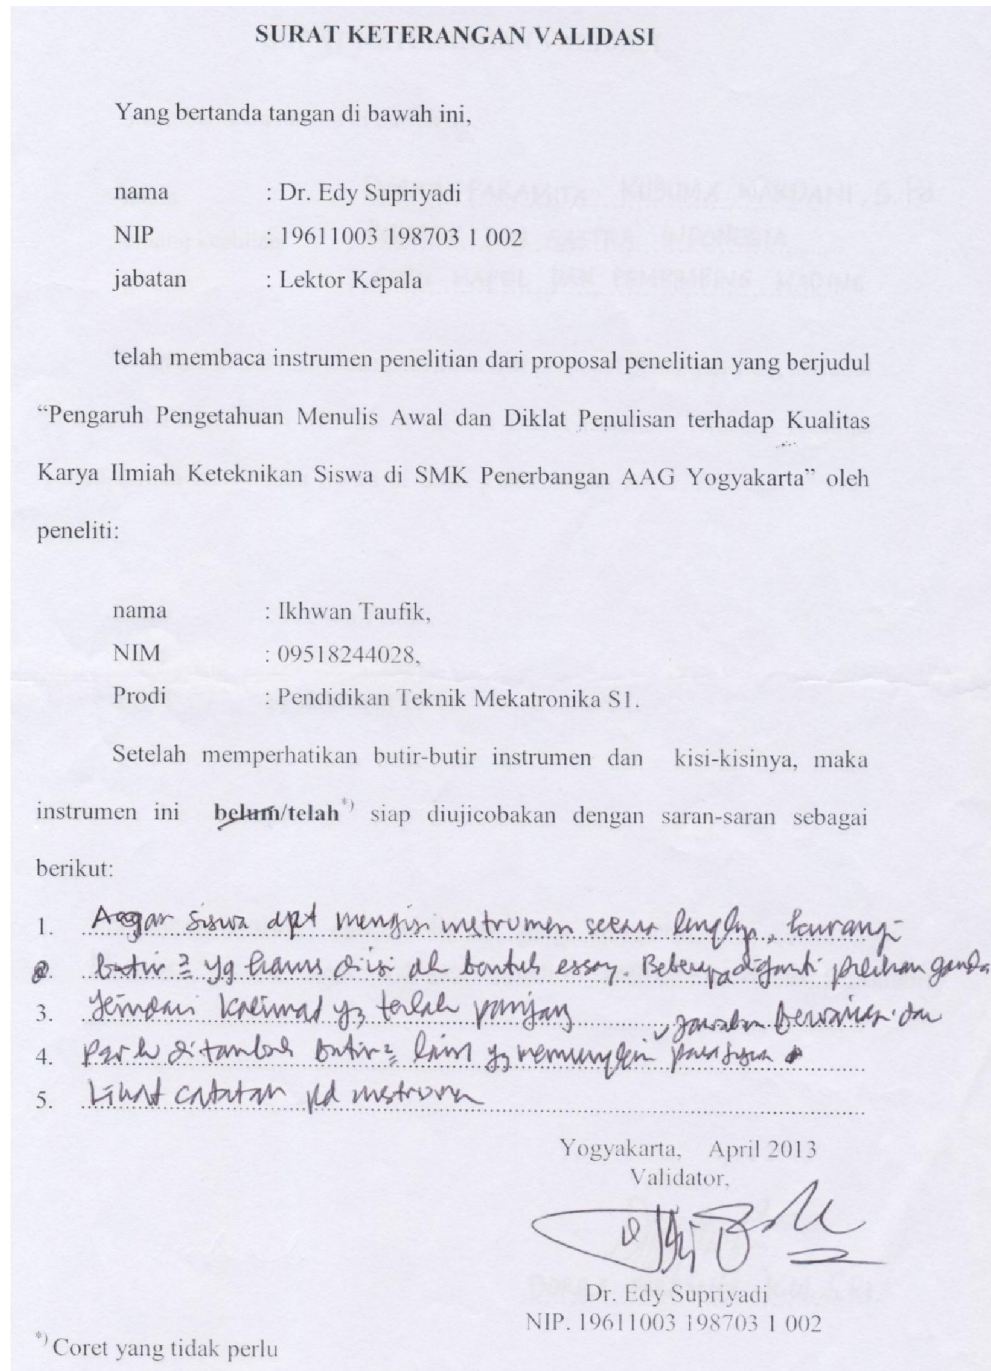 SURAT KETERANGAN VALIDASI
Yang bertanda tangan di bawah ini,
nama : Dr. Edy Supriyadi
NIP : 19611003 198703 1 002
jabatan : Lektor Kepala
telah membaca instrumen penelitian dari proposal penelitian yang berjudul
“Pengaruh Pengetahuan Menulis Awal dan Diklat Penulisan terhadap Kualitas
Karya Ilmiah Keteknikan Siswa di SMK Penerbangan AAG Yogyakarta” oleh
peneliti:
nama : Ikhwan Taufik,
NIM : 09518244028,
Prodi : Pendidikan Teknik Mekatronika S1.
Setelah memperhatikan butir-butir instrumen dan kisi-kisinya, maka
instrumen ini belum/telah*) siap diujicobakan dengan saran-saran sebagai
berikut:
1. Agar siswa dpt mengisi instrumen secara lengkap, kurangi
butir2 yg harus diisi dl bentuk essay. Beberapa diganti pilihan ganda
3. Hindari kalimat yg terlalu panjang
4. Perlu ditambah butir2 lain yg memungkin para siswa jawaban bervariasi dan
5. Lihat catatan pd instrumen
Yogyakarta, April 2013
Validator,
Dr. Edy Supriyadi
NIP. 19611003 198703 1 002
*) Coret yang tidak perlu